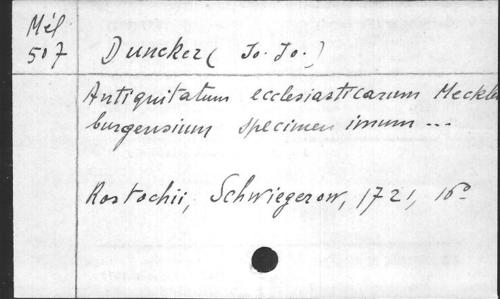 Mél.
507
Duncker ( Jo. Jo. )
Antiquitatum ecclesiasticarum Mecklen
burgensium specimen imum ...
Rostochii, Schwiegerow, 1721, 16°